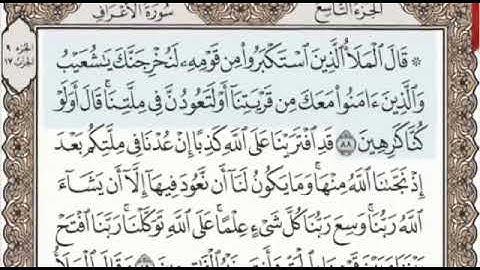 الجزء التاسع
سورة الأعراف
الجزء ٩
الحزب ١٧
۞ قَالَ ٱلْمَلَأُ ٱلَّذِينَ ٱسْتَكْبَرُوا۟ مِن قَوْمِهِۦ لَنُخْرِجَنَّكَ يَـٰشُعَيْبُ
وَٱلَّذِينَ ءَامَنُوا۟ مَعَكَ مِن قَرْيَتِنَآ أَوْ لَتَعُودُنَّ فِى مِلَّتِنَا ۚ قَالَ أَوَلَوْ
كُنَّا كَـٰرِهِينَ ٨٨ قَدِ ٱفْتَرَيْنَا عَلَى ٱللَّهِ كَذِبًا إِنْ عُدْنَا فِى مِلَّتِكُم بَعْدَ
إِذْ نَجَّىٰنَا ٱللَّهُ مِنْهَا ۚ وَمَا يَكُونُ لَنَآ أَن نَّعُودَ فِيهَآ إِلَّآ أَن يَشَآءَ
ٱللَّهُ رَبُّنَا ۚ وَسِعَ رَبُّنَا كُلَّ شَىْءٍ عِلْمًا ۚ عَلَى ٱللَّهِ تَوَكَّلْنَا ۚ رَبَّنَا ٱفْتَحْ